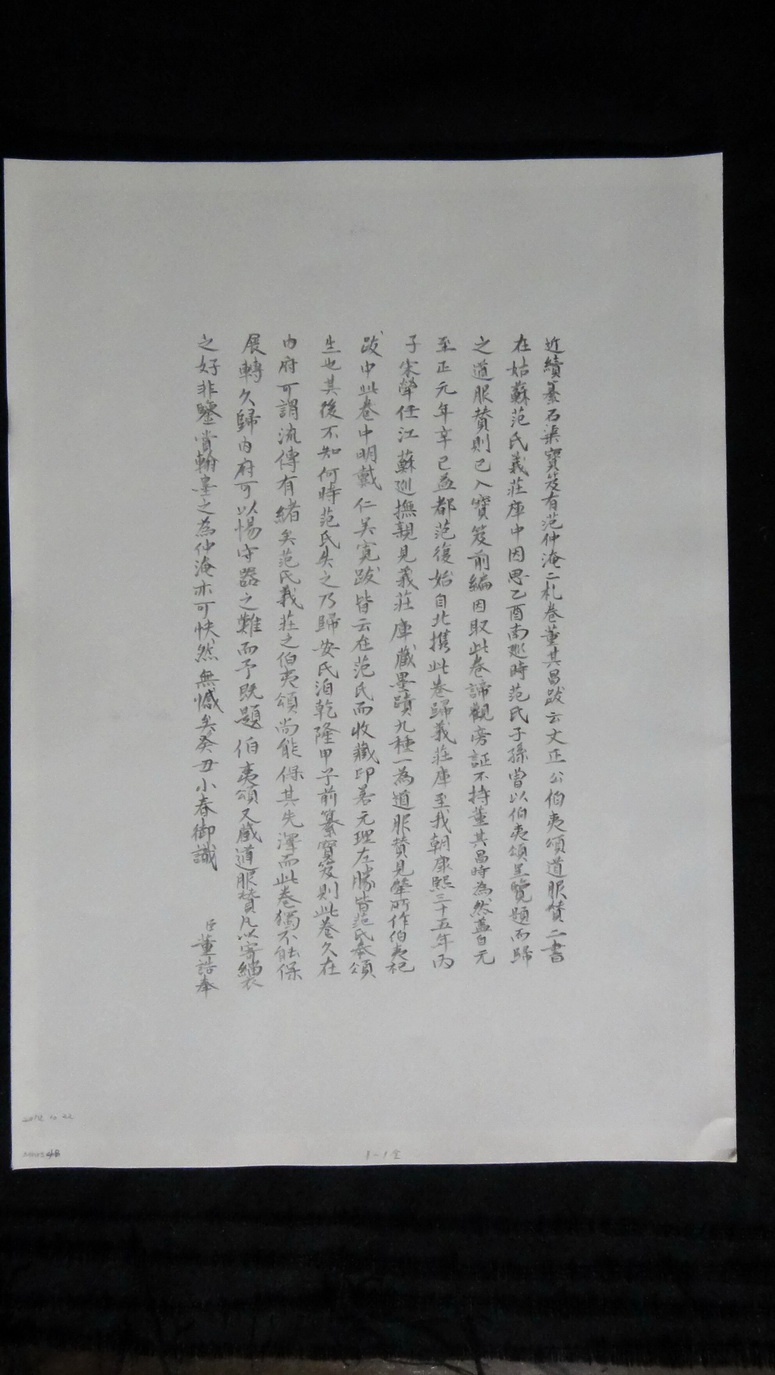 近續纂石渠寳笈有范仲淹二札卷董其昌跋云文正公伯夷頌道服贊二書
在姑蘇范氏義莊庫中因思乙酉南廵時范氏子孫曾以伯夷頌呈覽題而歸
之道服贊則已入寳笈前編因取此卷諦觀旁証不持董其昌時為然蓋自元
至正元年辛巳益都范復始自北携此卷歸義莊庫至我朝康熙三十五年丙
子宋犖任江蘇巡撫親見義莊庫藏墨蹟九種一為道服贊見犖所作伯夷祀
跋中此卷中明戴仁吳寬跋皆云在范氏而收藏印若元理左勝皆范氏奉頌
生也其後不知何時范氏失之乃歸安氏洎乾隆甲子前纂寳笈則此卷久在
内府可謂流傳有緒矣范氏義莊之伯夷頌尚能保其先澤而此卷獨不能保
展轉久歸内府可以惕守器之難而予既題伯夷頌又識道服贊凡以寄緇衣
之好非鑒賞翰墨之為仲淹亦可快然無憾矣癸丑小春御識
臣董誥奉
48